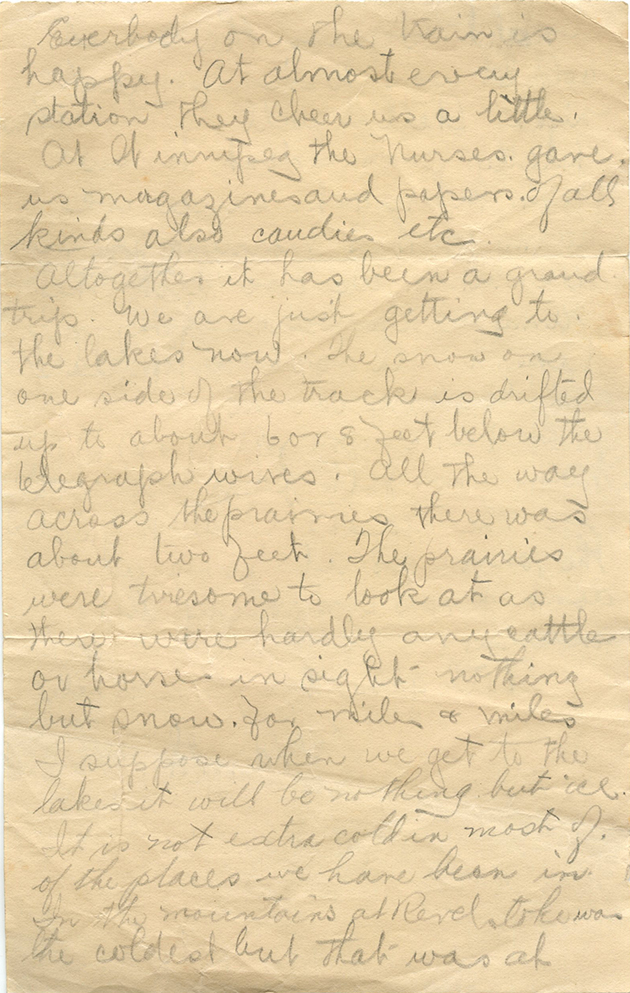 Everbody on the train is
happy. At almost every
station they cheer us a little.
At Winnipeg the Nurses. gave.
us magazines and papers. of all
kinds also candies etc.
Altogether it has been a grand
trip. We are just getting to.
the lakes now. The snow on
one side of the track is drifted
up to about 6 or 8 feet below the
telegraph wires. All the way
across the prairies there was
about two feet. The prairies
were tiresome to look at as
there were hardly any cattle
or horses in sight nothing
but snow. for miles & miles
I suppose when we get to the
lakes it will be nothing but ice.
It is not extra cold in most of.
of the places we have been in.
In the mountains at Revelstoke was
the coldest but that was at